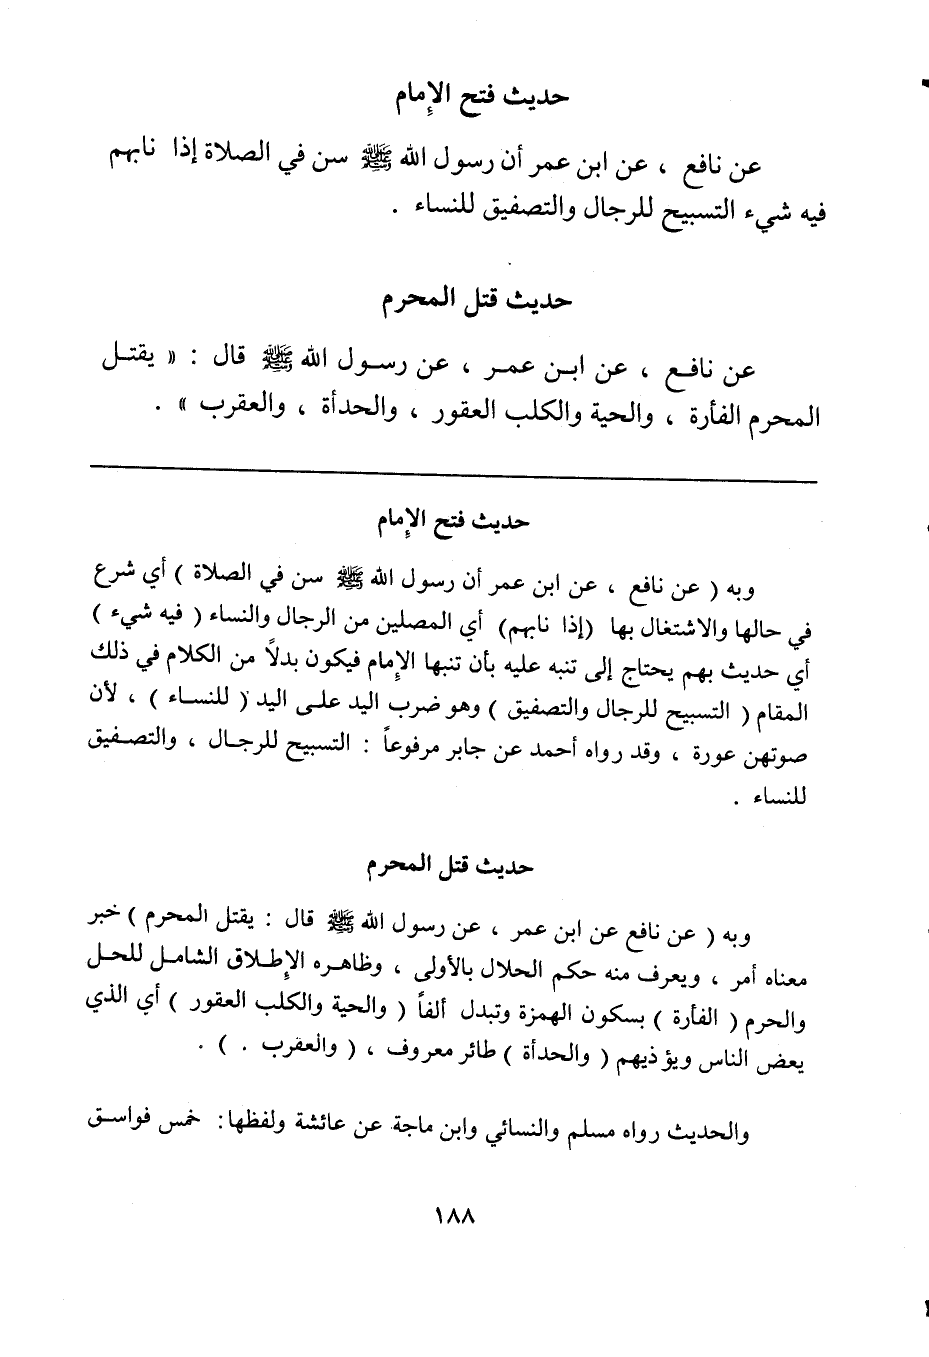 حديث فتح الإمام
عن نافع ، عن ابن عمر أن رسول الله ﷺ سن في الصلاة إذا نابهم
فيه شيء التسبيح للرجال والتصفيق للنساء .
حديث قتل المحرم
عن نافـع ، عن ابـن عمـر ، عن رسـول الله ﷺ قال : « يقتـل
المحرم الفأرة ، والحية والكلب العقور ، والحدأة ، والعقرب » .
حديث فتح الإمام
وبه ( عن نافع ، عن ابن عمر أن رسول الله ﷺ سن في الصلاة ) أي شرع
في حالها والاشتغال بها (إذا نابهم) أي المصلين من الرجال والنساء ( فيه شيء )
أي حديث بهم يحتاج إلى تنبه عليه بأن تنبها الإمام فيكون بدلاً من الكلام في ذلك
المقام ( التسبيح للرجال والتصفيق ) وهو ضرب اليد علـى اليد ( للنسـاء ) ، لأن
صوتهن عورة ، وقد رواه أحمد عن جابر مرفوعاً : التسبيح للرجـال ، والتصـفيق
للنساء .
حديث قتل المحرم
وبه ( عن نافع عن ابن عمر ، عن رسول الله ﷺ قال : يقتل المحرم ) خبر
معناه أمر ، ويعرف منه حكم الحلال بالأولى ، وظاهـره الإطـلاق الشامـل للحـل
والحرم ( الفأرة ) بسكون الهمزة وتبدل ألفاً ( والحية والكلب العقور ) أي الذي
يعض الناس ويؤذيهم ( والحدأة ) طائر معروف ، ( والعقرب . ) .
والحديث رواه مسلم والنسائي وابن ماجة عن عائشة ولفظها: خمس فواسـق
١٨٨